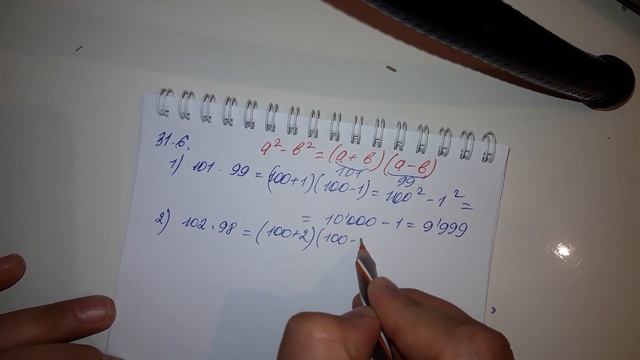 31.6.
a² - в² = (a + в) (a - в)
101 99
1) 101 · 99 = (100+1)(100-1) = 100² - 1² =
= 10'000 - 1 = 9'999
2) 102 · 98 = (100+2)(100-